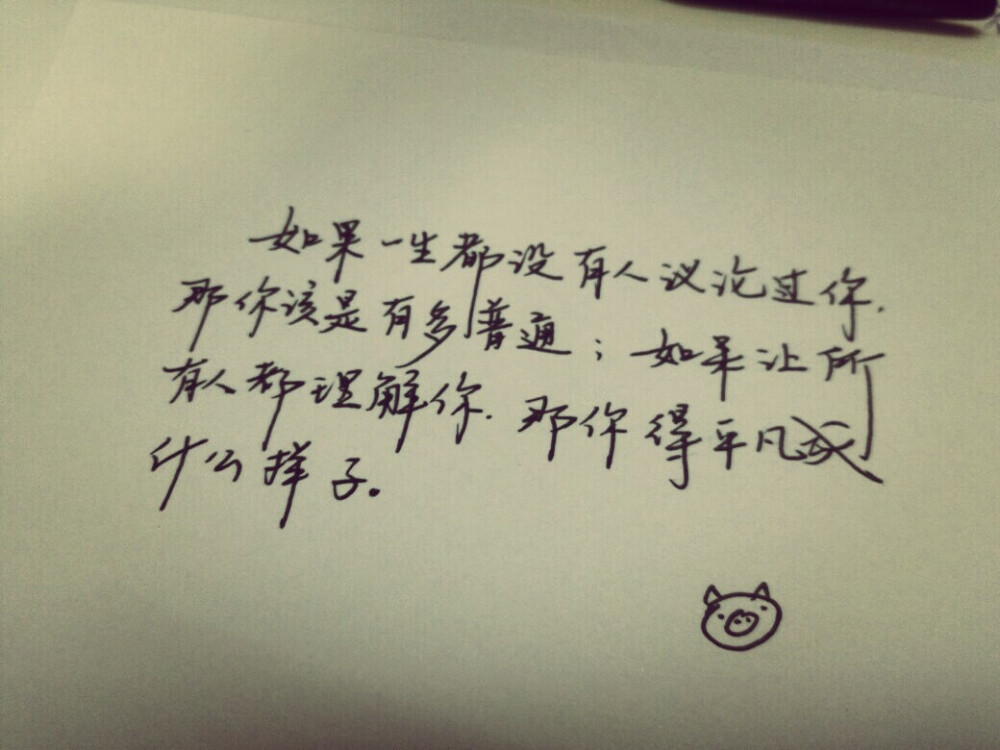 如果一生都没有人议论过你.
那你该是有多普通；如果让所
有人都理解你.那你得平凡成
什么样子。